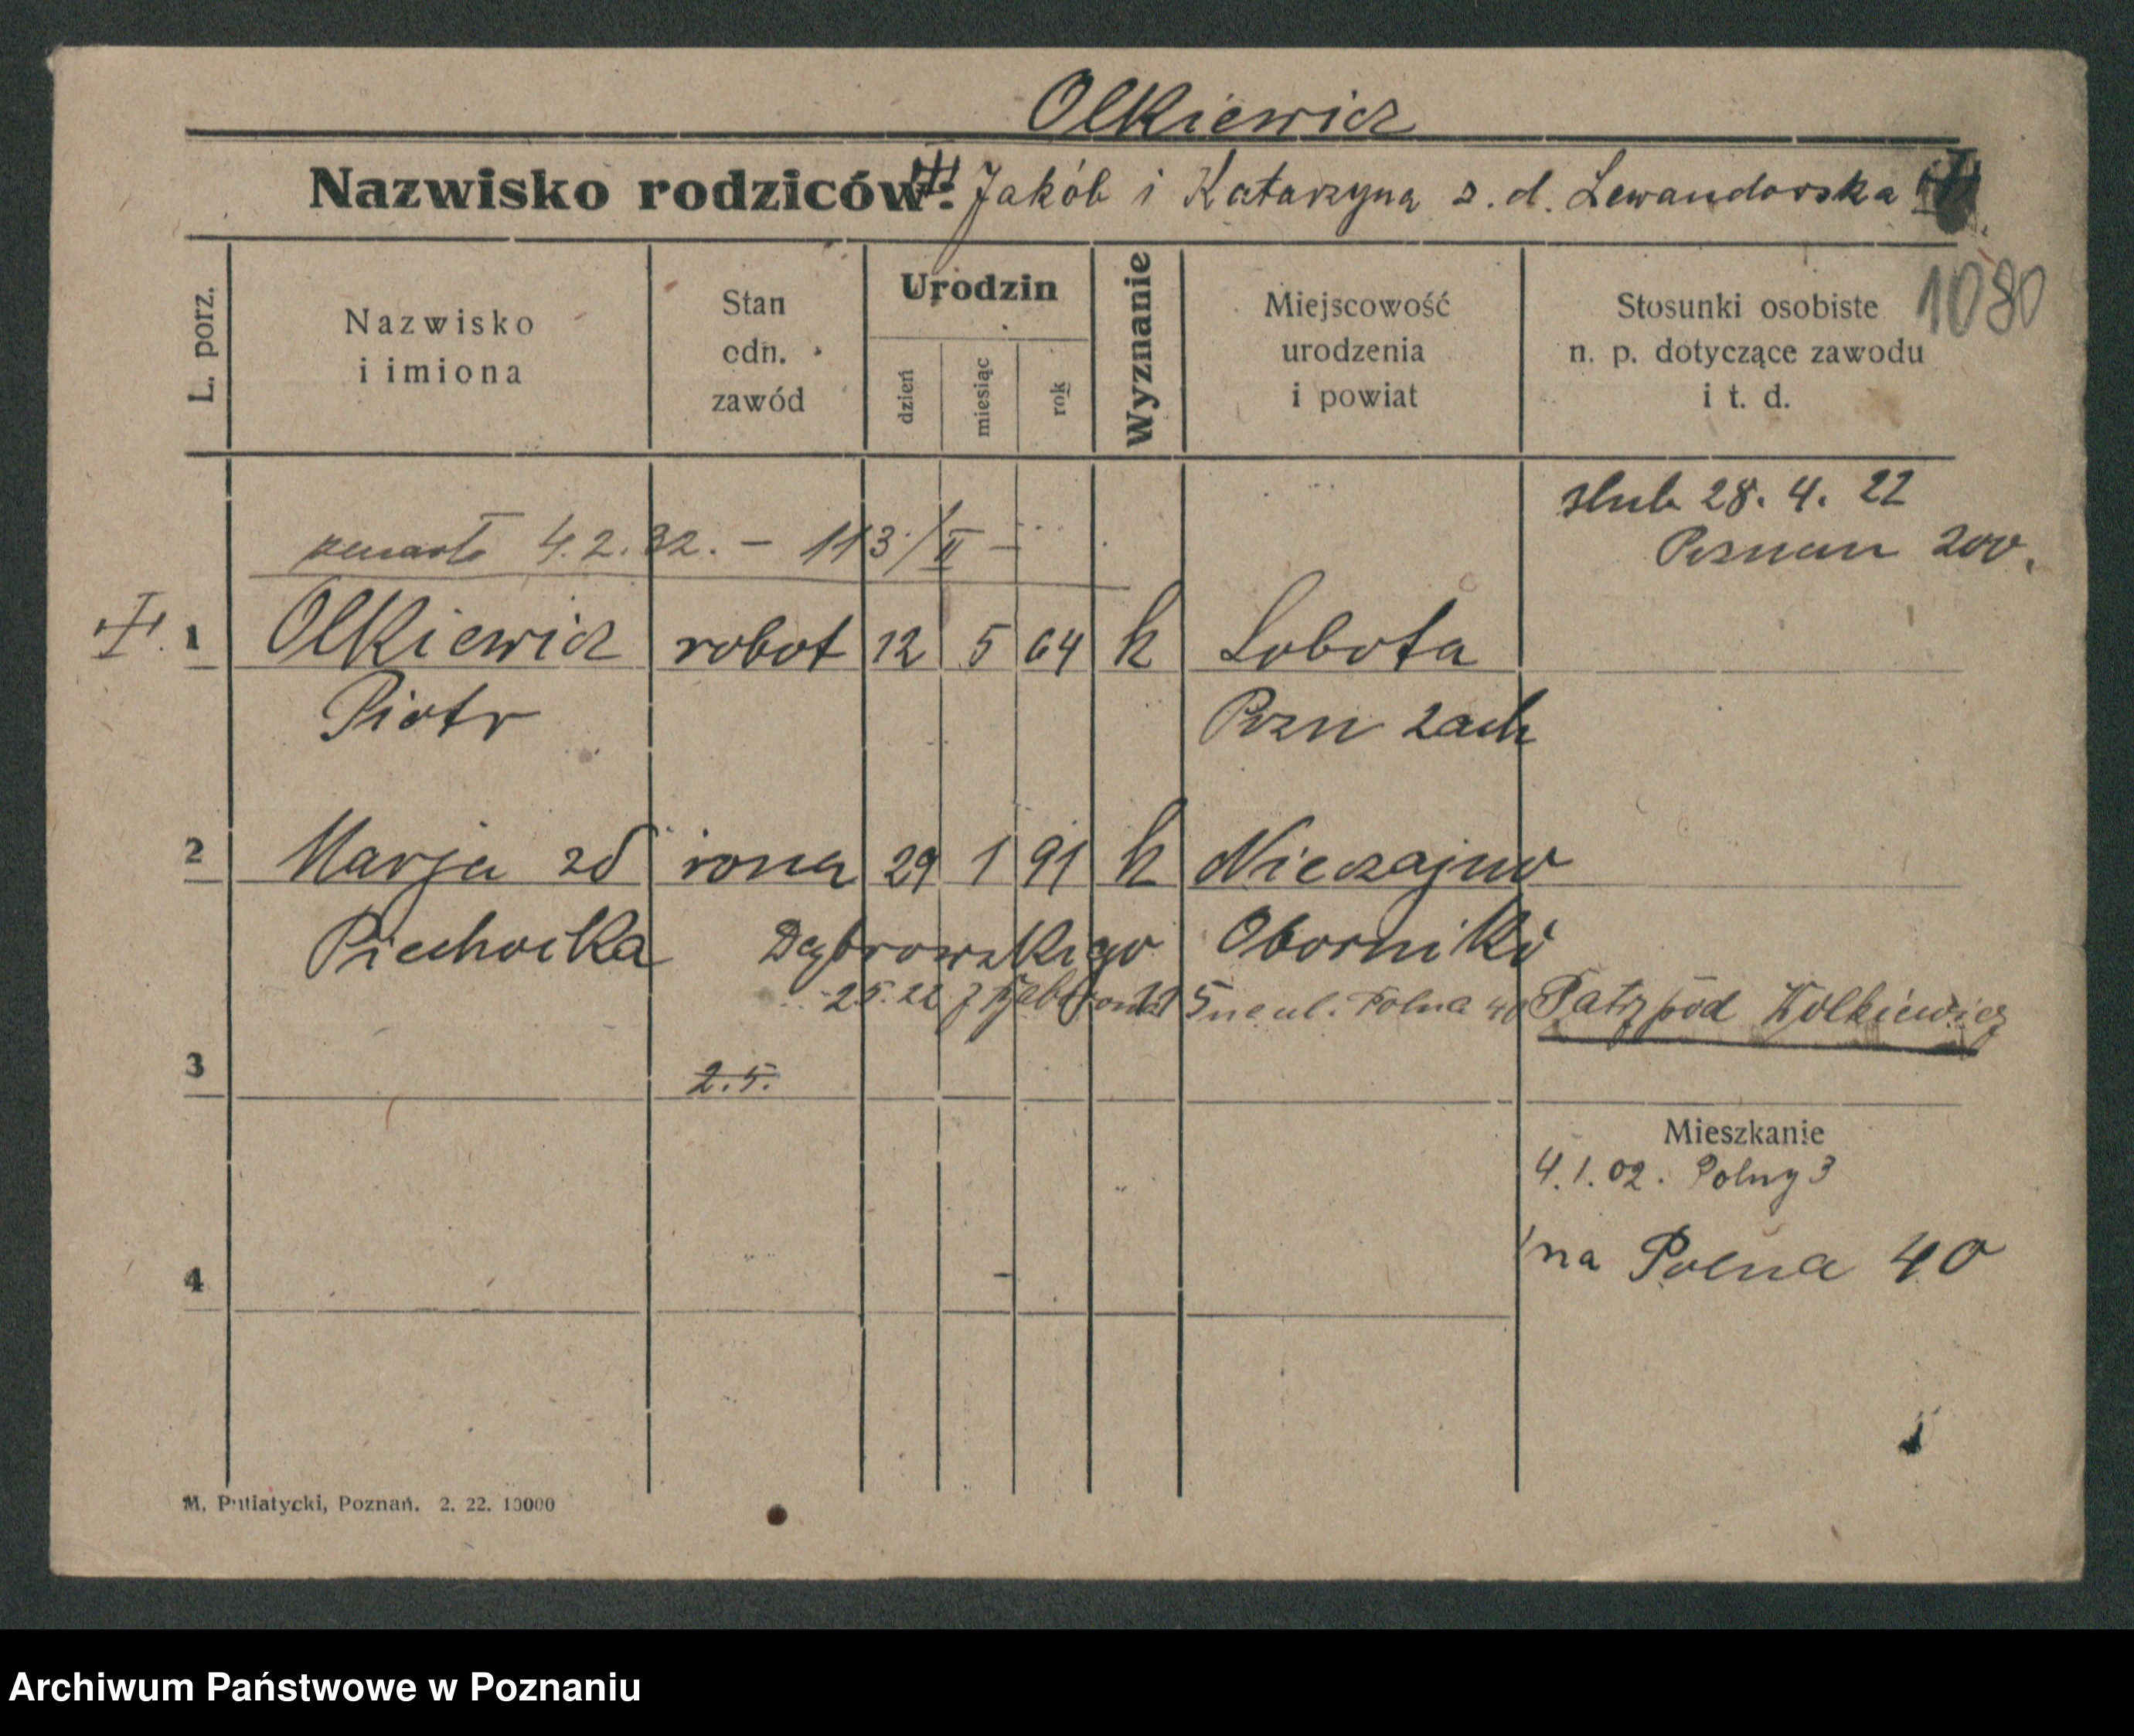 Olkiewicz
Nazwisko rodziców: Jakób i Katarzyna z. d. Lewandowska
1080
L. porz.
Nazwisko
i imiona
Stan
odn.
zawód
Urodzin
dzień
miesiąc
rok
Wyznanie
Miejscowość
urodzenia
i powiat
Stosunki osobiste
n. p. dotyczące zawodu
i t. d.
slub 28. 4. 22
Poznan 200.
4.2.32. – 113/II –
1 Olkiewicz robot 12 5 64 k Sobota
Piotr Pozn zach
2 Marja zd żona 29 1 91 k Nieczajno
Piechocka Dąbrowskiego Oborniki
2.5.22 na ul. Polna 40 Patrz pod Kolkiewicz
3 2.5.
Mieszkanie
4.1.02. Polny 3
na Polna 40
4
M. Putiatycki, Poznań. 2. 22. 10000
Archiwum Państwowe w Poznaniu